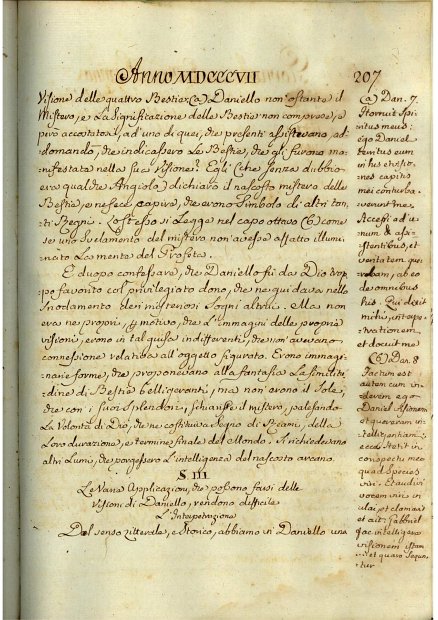 Anno MDCCCVII
207
Visione delle quattro Bestie, (a) Daniello non ostante il
Mistero, e la Significazione delle Bestie non comprese, e
però accostatosi ad uno di quei, che presenti assistevano, ad
domandò, che indicassero le Bestie, che gli furono ma
nifestate nella sua Visione? Egli (che senza dubbio
era qualche Angiolo) dichiarò il nascosto mistero delle
Bestie, e nefece capire, che erono Simbolo di altri tan
ti Regni. Lostesso si legge nel capo ottavo (b) come
se uno Svelamento del mistero non avesse affatto illumi
nato la mente del Profeta.
E duopo confessare, che Daniello fù da Dio trop
po favorito col privilegiato dono, che ne qui dava nello
Snodamento dei misteriosi Sogni altrui. Ma non
era ne propri, il motivo, che l'immagini delle proprie
visioni, erono in tal guisa indifferenti, che non avevano
connessione relativa all'oggetto figurato. Erono immagi
narie forme, che proponevano alla fantasia la similitu
dine di Bestie belligeranti, ma non erono il Sole,
che con i suoi Splendori, schiarisse il mistero, palesando
la Volontà di Dio, che ne costituiva Segno di Reami, della
Loro durazione, e termine finale del Mondo. Si richiedevano
altri Lumi, che porgessero l'intelligenza del nascosto arcano.
S III
Le Varie Applicazioni, che possono farsi delle
Visioni di Daniello, rendono difficile
L'Interpretazione
Del senso Litterale, e Storico, abbiamo in Daniello una
(a) Dan. 7.
Horruit Spi
ritus meus:
ego Daniel
territus sum
in his et visio
nes capitis
mei conturba
verunt me.
Accessi ad u
num de assi
stentibus, et
veritatem quæ
rebam, ab eo
de omnibus
his. Qui dixit
mihi, interpre
tationem,
et docuit me
(b) Dan. 8
Factum est
autem cum vi
derem ego
Daniel Visionem
et quærerem in
telligentiam;
ecce stetit in
conspectu meo
quasi Species
viri. Et audivi
vocem viri in
ulai, et clamavit
et ait: Gabriel
fac intelligere
visionem istam
et quæ Sequn
tur